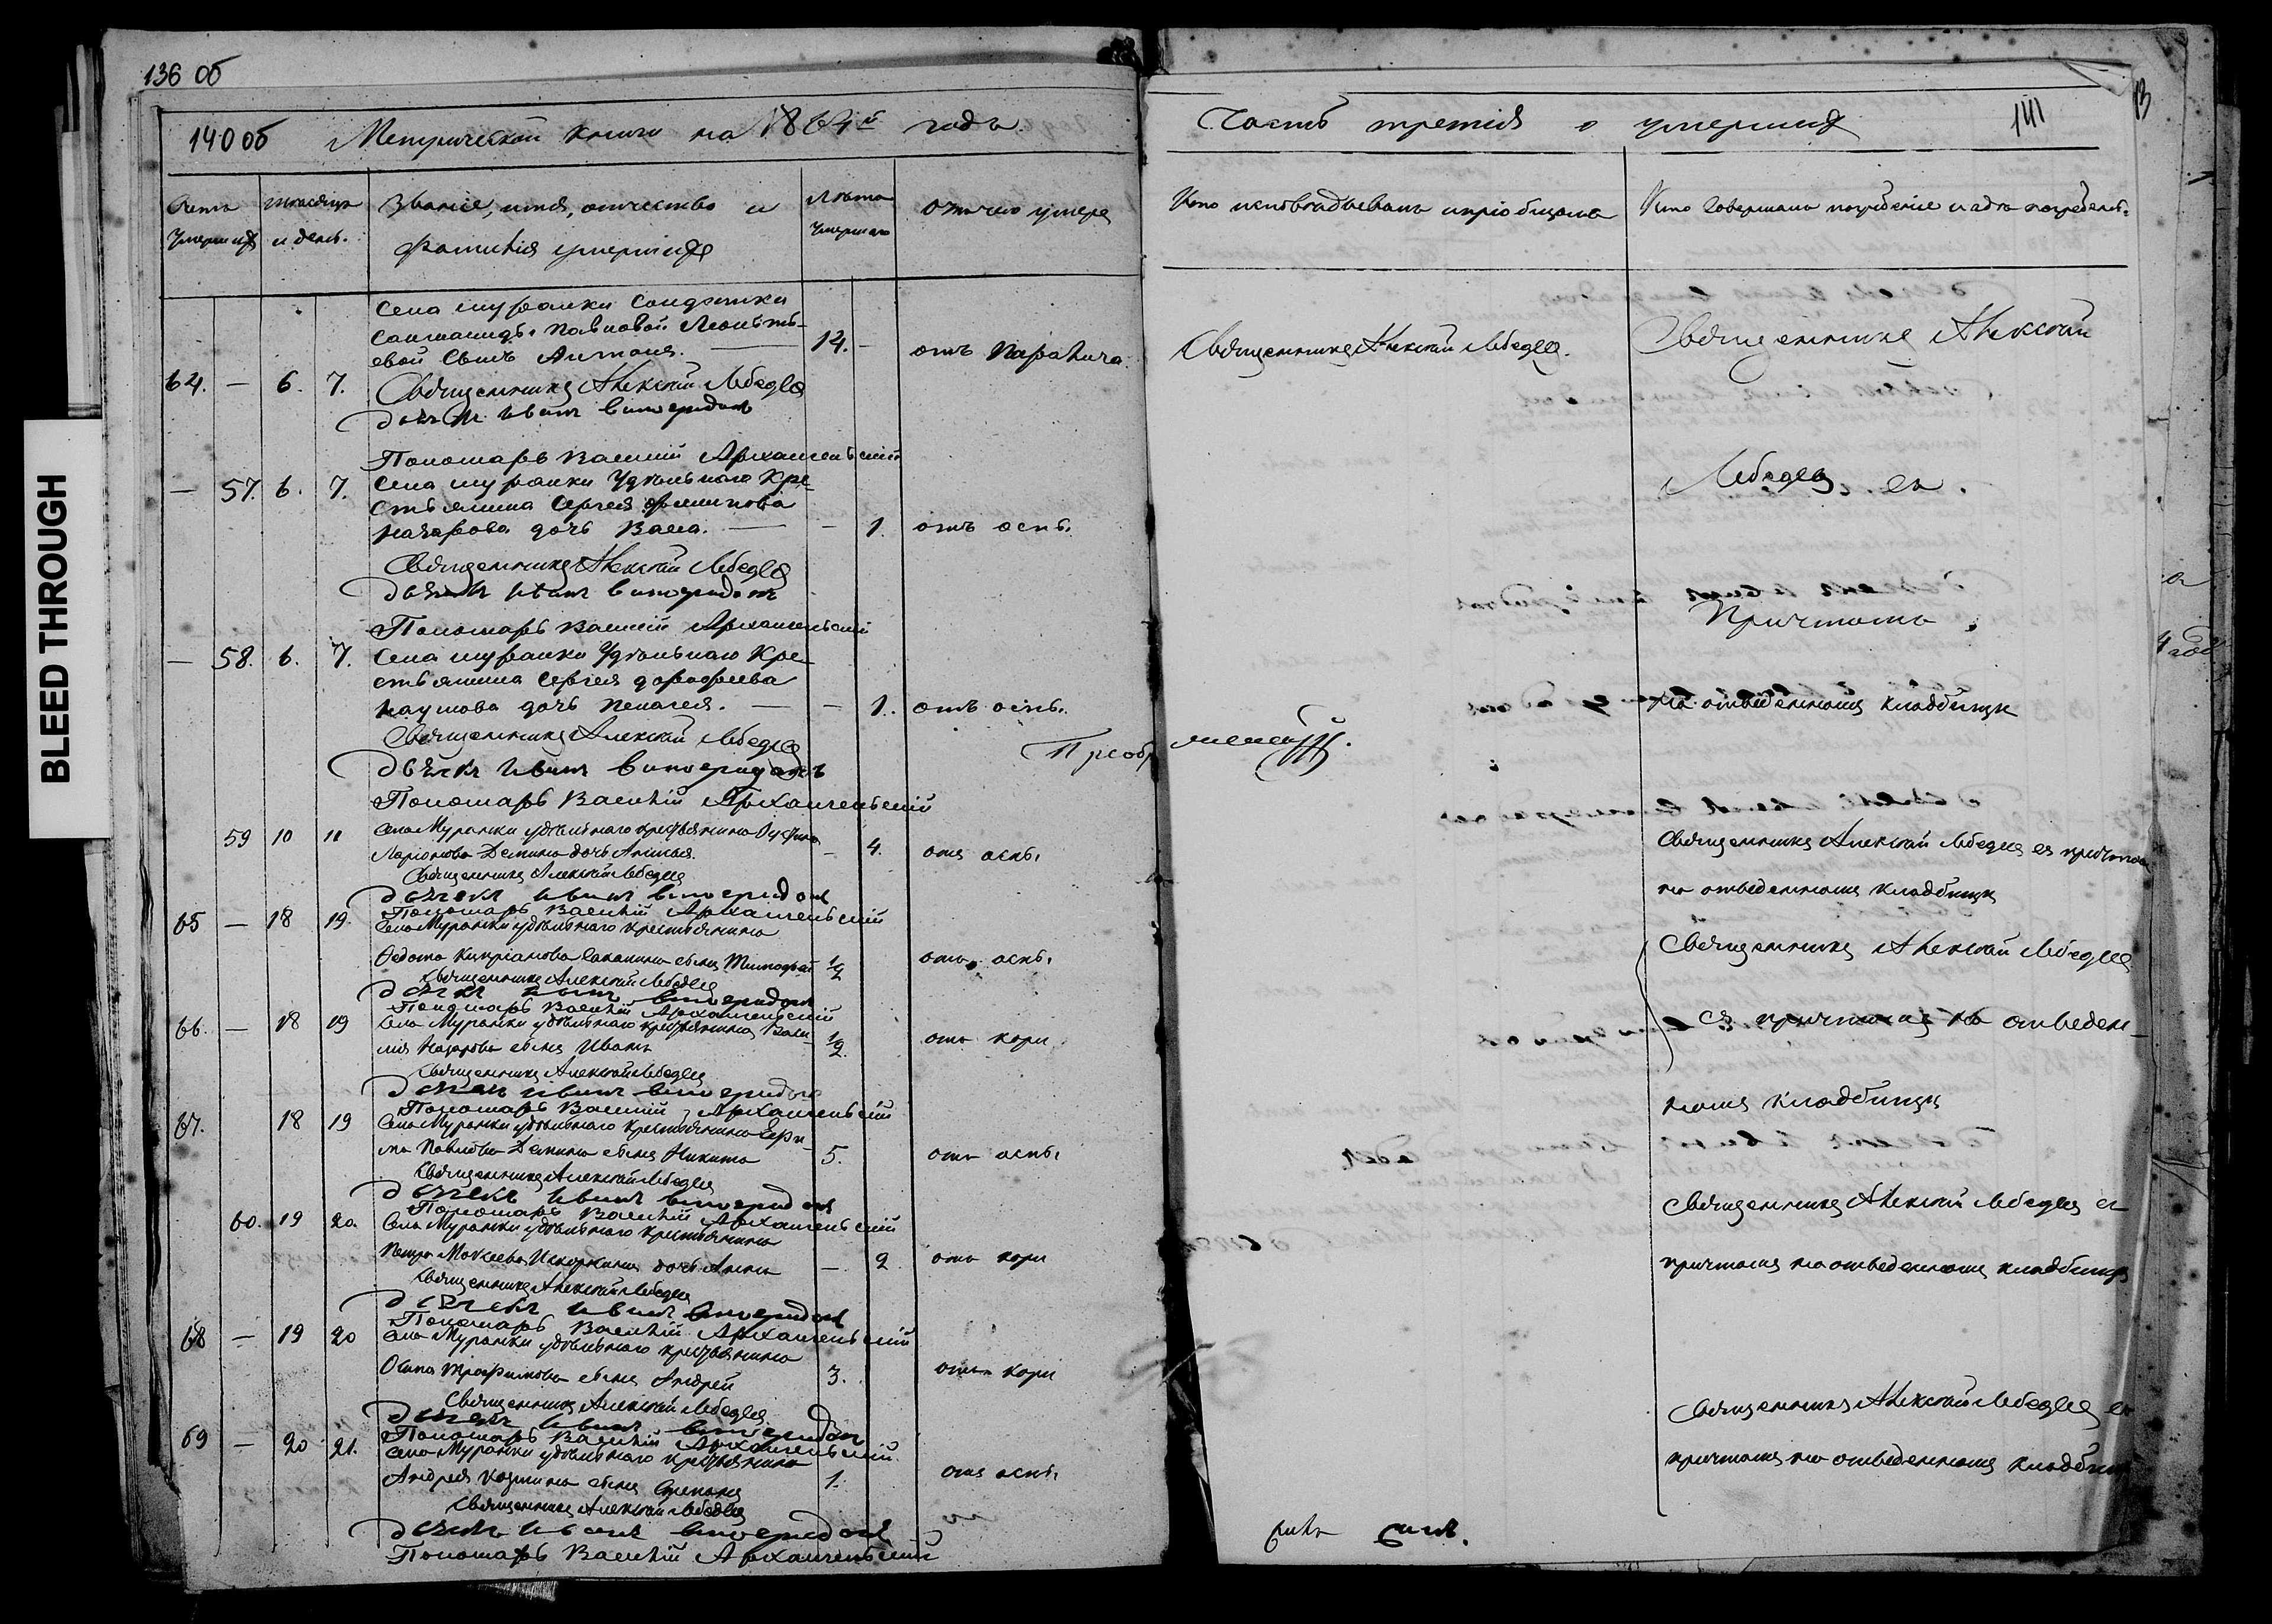 136 об
140 об Метрической книги на 1864й годъ.
Часть третія о умершихъ
141
Счетъ умершихъ
мѣсяцъ и день.
Званіе, имя, отчество и фамилія умершихъ
Лѣта умершаго
Отъ чего умеръ
Кто исповѣдывалъ и пріобщалъ
Кто совершалъ погребеніе и гдѣ погребены.
Села Муранки Солдатки
Павловой Леонть-
евой сынъ Антонъ. — 14. —
отъ паралича
Священникъ Алексѣй Лебедевъ.
Священникъ Алексѣй
64. — 6. 7. Священникъ Алексѣй Лебедевъ
Дьячекъ Иванъ Виноградовъ
Пономарь Василій Архангельскій
— 57. 6. 7. Села Муранки Удѣльнаго Кре-
стьянина Сергея Филипова
Назарова дочь Васса. — — 1. отъ оспы.
Лебедевъ съ
Священникъ Алексѣй Лебедевъ
Дьячекъ Иванъ Виноградовъ
Причтомъ
Пономарь Василій Архангельскій
— 58. 6. 7. Села Муранки Удѣльнаго Кре-
стьянина Сергея Дорофеева
Наумова дочь Пелагея. — — 1. отъ оспы.
на отведенномъ кладбищѣ
Священникъ Алексѣй Лебедевъ
Дьячекъ Иванъ Виноградовъ
Преобр
Пономарь Василій Архангельскій
59 10 11 Села Муранки удѣльнаго крестьянина
Ларіонова Демина дочь — 4. отъ оспы
Священникъ Алексѣй Лебедевъ съ причтомъ
на отведенномъ кладбищѣ
Священникъ Алексѣй Лебедевъ
Дьячекъ Иванъ Виноградовъ
Пономарь Василій Архангельскій
65 — 18 19. Села Муранки удѣльнаго крестьянина
Федота Кипріанова сынъ Тимофей 1/2 отъ оспы
Священникъ Алексѣй Лебедевъ
Священникъ Алексѣй Лебедевъ
Дьячекъ Иванъ Виноградовъ
Пономарь Василій Архангельскій
66. — 18 19 Села Муранки удѣльнаго крестьянина Васи-
лія Назарова сынъ Иванъ 1/2. отъ кори
съ причтомъ на отведен-
Священникъ Алексѣй Лебедевъ
Дьячекъ Иванъ Виноградовъ
Пономарь Василій Архангельскій
номъ кладбищѣ
67. 18 19 Села Муранки удѣльнаго крестьянина
Павлова Демина сынъ Никита 5. отъ оспы
Священникъ Алексѣй Лебедевъ
Дьячекъ Иванъ Виноградовъ
Пономарь Василій Архангельскій
60. 19 20. Села Муранки удѣльнаго крестьянина
Петра Моисеева дочь Анна — 2. отъ кори
Священникъ Алексѣй Лебедевъ съ
причтомъ на отведенномъ кладбищѣ
Священникъ Алексѣй Лебедевъ
Дьячекъ Иванъ Виноградовъ
Пономарь Василій Архангельскій
68 — 19 20 Села Муранки удѣльнаго крестьянина
Осипа Трофимова сынъ Андрей 3. отъ кори
Священникъ Алексѣй Лебедевъ
Дьячекъ Иванъ Виноградовъ
Пономарь Василій Архангельскій
69 — 20 21. Села Муранки удѣльнаго крестьянина
Андрея Козмина сынъ Степанъ 1. отъ оспы
Священникъ Алексѣй Лебедевъ съ
причтомъ на отведенномъ кладбищѣ
Священникъ Алексѣй Лебедевъ
Дьячекъ Иванъ Виноградовъ
Пономарь Василій Архангельскій
BLEED THROUGH